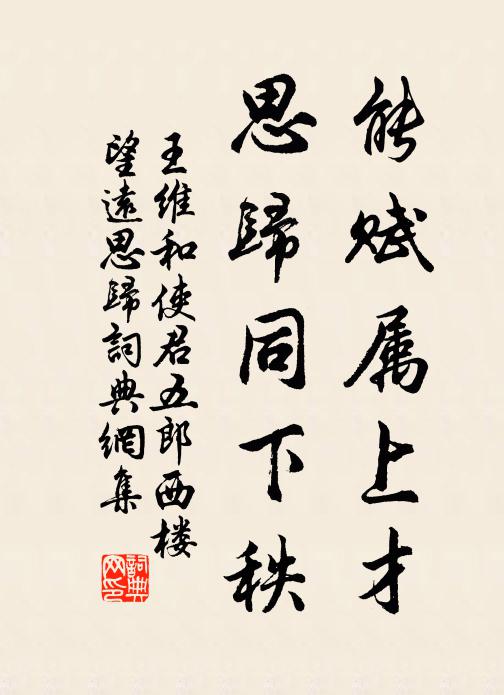 能赋属上才
思歸同下秩
王维和使君五郎西楼
望遠思歸詞典網集
詞典
网印